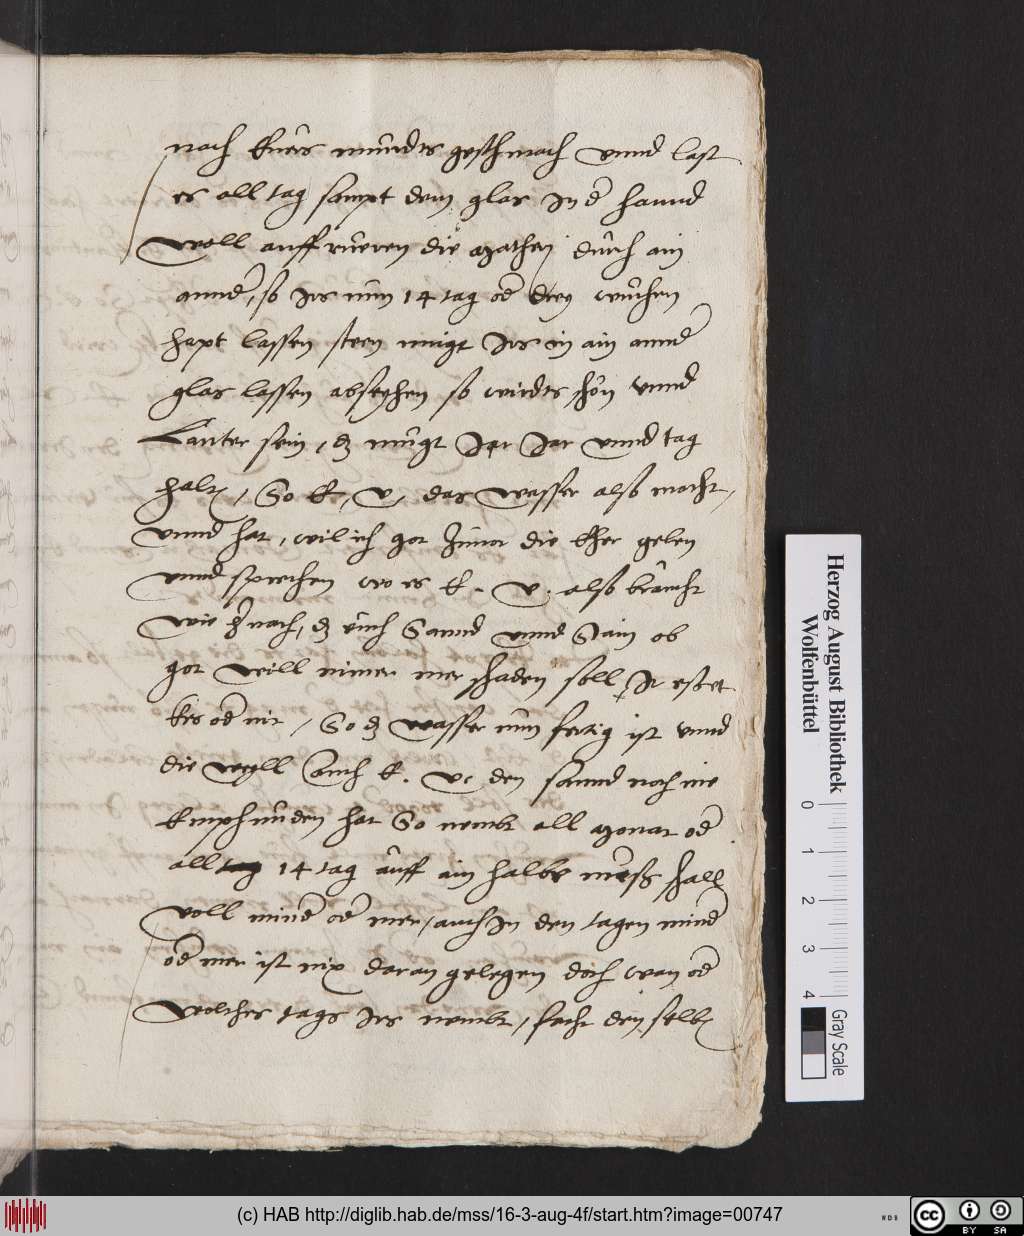 nach Euers mundts geschmach vnnd last
es all tag sampt dem glas in d hannd
woll auff rueren die mathery durch ain
annd, so irs nun 14 tag od drey wuchen
hapt lassen steen mugt irs in ain annd
glas lassen abseyhen so wirdts schon vnnd
Lauter sein, dz mugt ir Jar vnnd tag
halt, So E, v, das wasser also macht,
vnnd hat, wil ich got zuuor die Eher geben
vnnd sprechen wo es E. v. also braucht
wie hernach, dz euch Sannd vnnd Stain ob
got will nimer mer schaden soll, Ir esset
kes od nit, So dz wasser nun fertig ist vnnd
die weyll auch E. v. den sannd noch nie
Emphunden hat So nembt all monat od
all 14 tag auff ain halbe nuess schall
voll mind od mer, auch in den tagen mind
od mer ist nix daran gelegen doch wan od
welches tags irs nembt, facht den selb
Herzog August Bibliothek
Wolfenbüttel
0 1 2 3 4
Gray Scale
(c) HAB http://diglib.hab.de/mss/16-3-aug-4f/start.htm?image=00747
WDB
cc
BY SA